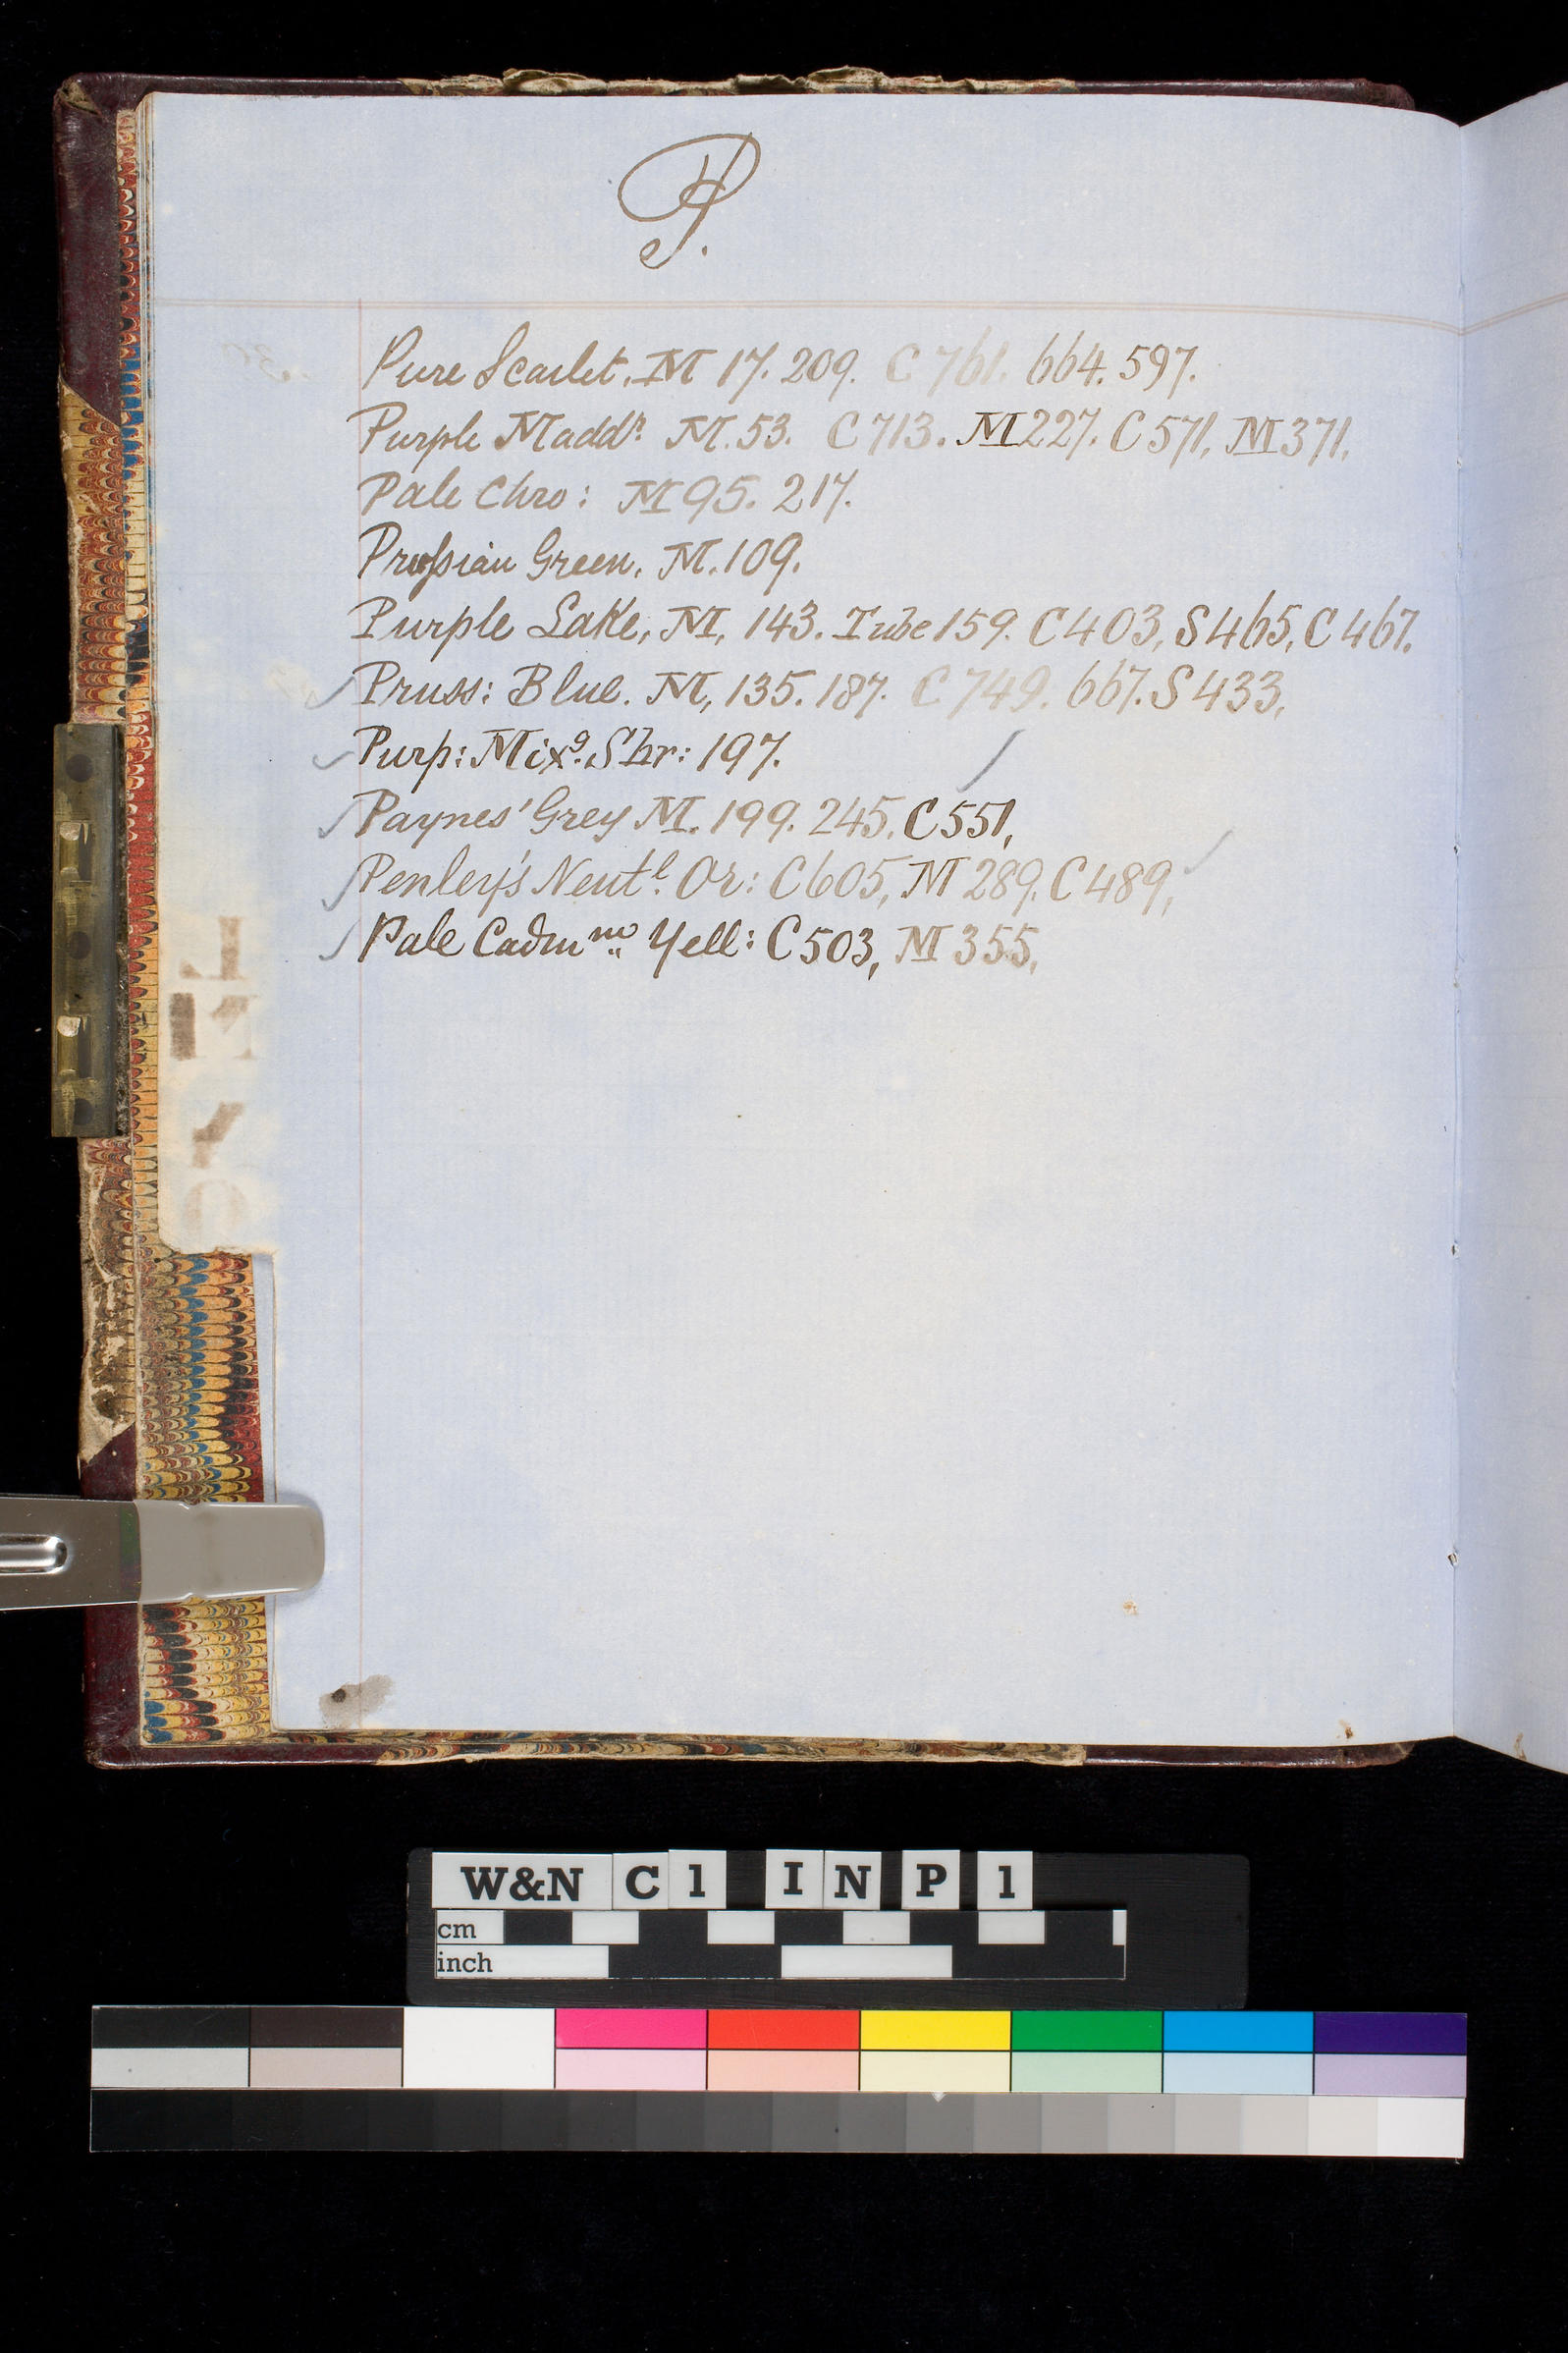 P.
Pure Scarlet. M 17. 209. C 761. 664. 597.
Purple Maddr. M. 53. C 713. M 227. C 571, M 371,
Pale Chro: M 95. 217.
Prussian Green. M. 109.
Purple Lake, M, 143. Tube 159. C 403, S 465, C 467.
Pruss: Blue. M, 135. 187. C 749. 667. S 433,
Purp: Mixg. Shr: 197.
Paynes' Grey M. 199. 245. C 551,
Penley's Neutl. Or: C 605, M 289. C 489,
Pale Cadmm Yell: C 503, M 355,
W&N C1 IN P 1
cm
inch